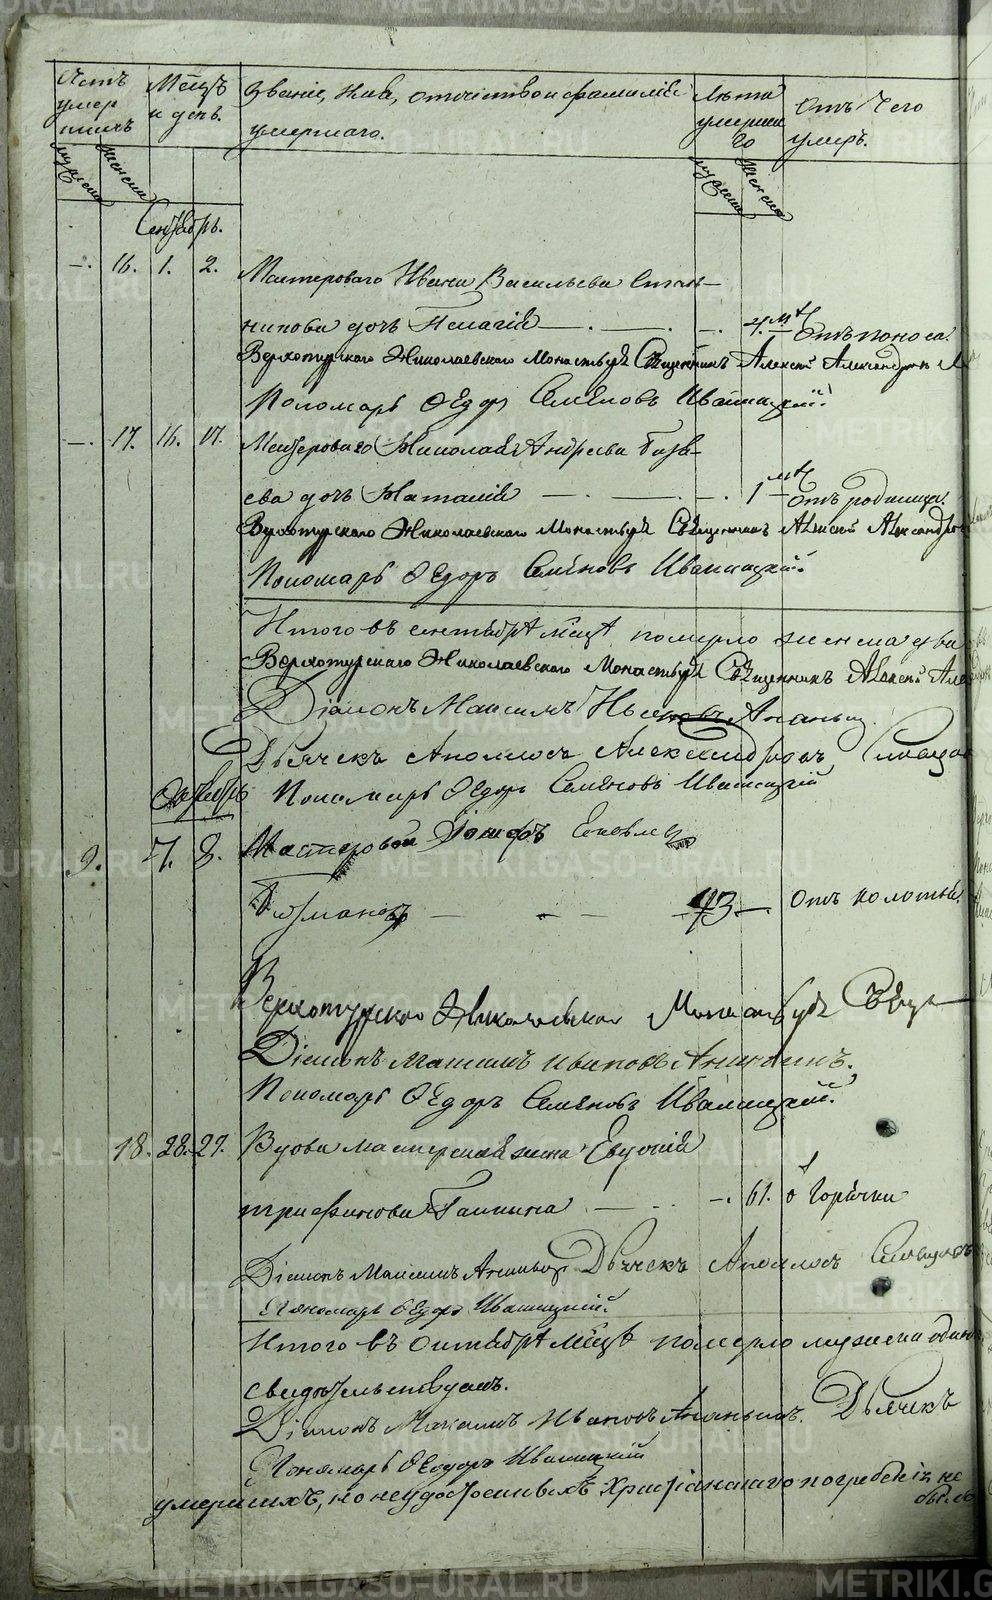 METRIKI.GASO-URAL.RU
Счетъ умершихъ
Мѣсяцъ и день.
Званіе, имя, отчество и фамилія умершаго.
Лѣта умершаго
Отъ чего умеръ.
мужска женска
мужска женска
Сентябрь.
—. 16. 1. 2. Мастероваго Ивана Васильева
дочь Пелагія —. —. —. 4. мцъ отъ поноса.
Верхотурскаго Николаевскаго Монастыря Священникъ Алексѣй Александровъ
Пономарь Ѳедоръ Семеновъ Ивашицкій.
—. 17. 16. 17. Мастероваго Николая Андреева
дочь Наталія —. —. —. 1 мцъ отъ родимца.
Верхотурскаго Николаевскаго Монастыря Священникъ Алексѣй Александровъ
Пономарь Ѳедоръ Семеновъ Ивашицкій.
Итого въ сентябрѣ мѣсяцѣ померло женска два
Верхотурскаго Николаевскаго Монастыря Священникъ Алексѣй
Діаконъ Максимъ Ананьин
Дьячекъ Аполлосъ Александровъ
Октябрь Пономарь Ѳедоръ Семеновъ Ивашицкій
9. 7. 8. Мастеровой Іосифъ
— - — 43 —. отъ колотья.
Верхотурского Николаевскаго Монастыря Свяще
Діаконъ Максимъ Ивановъ Ананьинъ.
Пономарь Ѳедоръ Семеновъ Ивашицкій.
18. 28. 29. Вдова мастерская жена Евдокія
трифонова —. 61. о горячки
Діаконъ Максимъ Ананьинъ Дьячекъ Аполлосъ
Пономарь Ѳедоръ Ивашицкій.
Итого въ октябрѣ мѣсяцѣ померло мужска одинъ
свидѣтельствуемъ.
Діаконъ Максимъ Ивановъ Ананьинъ. Дьячекъ
Пономарь Ѳеодоръ Ивашицкій
умершихъ, но неудостоенныхъ Христіанскаго погребенія не было